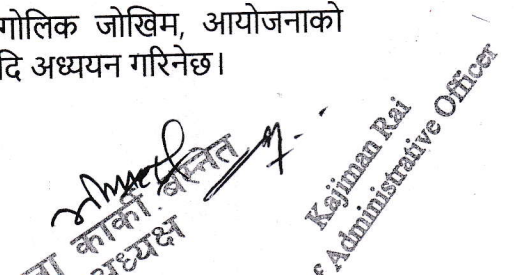 गोलिक जोखिम, आयोजनाको
दि अध्ययन गरिनेछ।
कार्की बस्नेत
अध्यक्ष
Kajiman Rai
f Administrative Officer